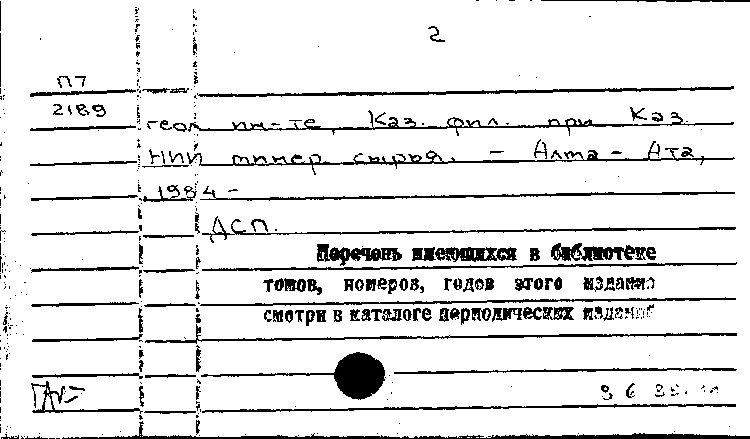 2
П7
2189
геол ин-те, Каз. фил. при Каз
НИИ минер. сырья. - Алма-Ата,
1984 -
ДСП.
Перечень имеющихся в библиотеке
томов, номеров, годов этого издания
смотри в каталоге периодических изданий